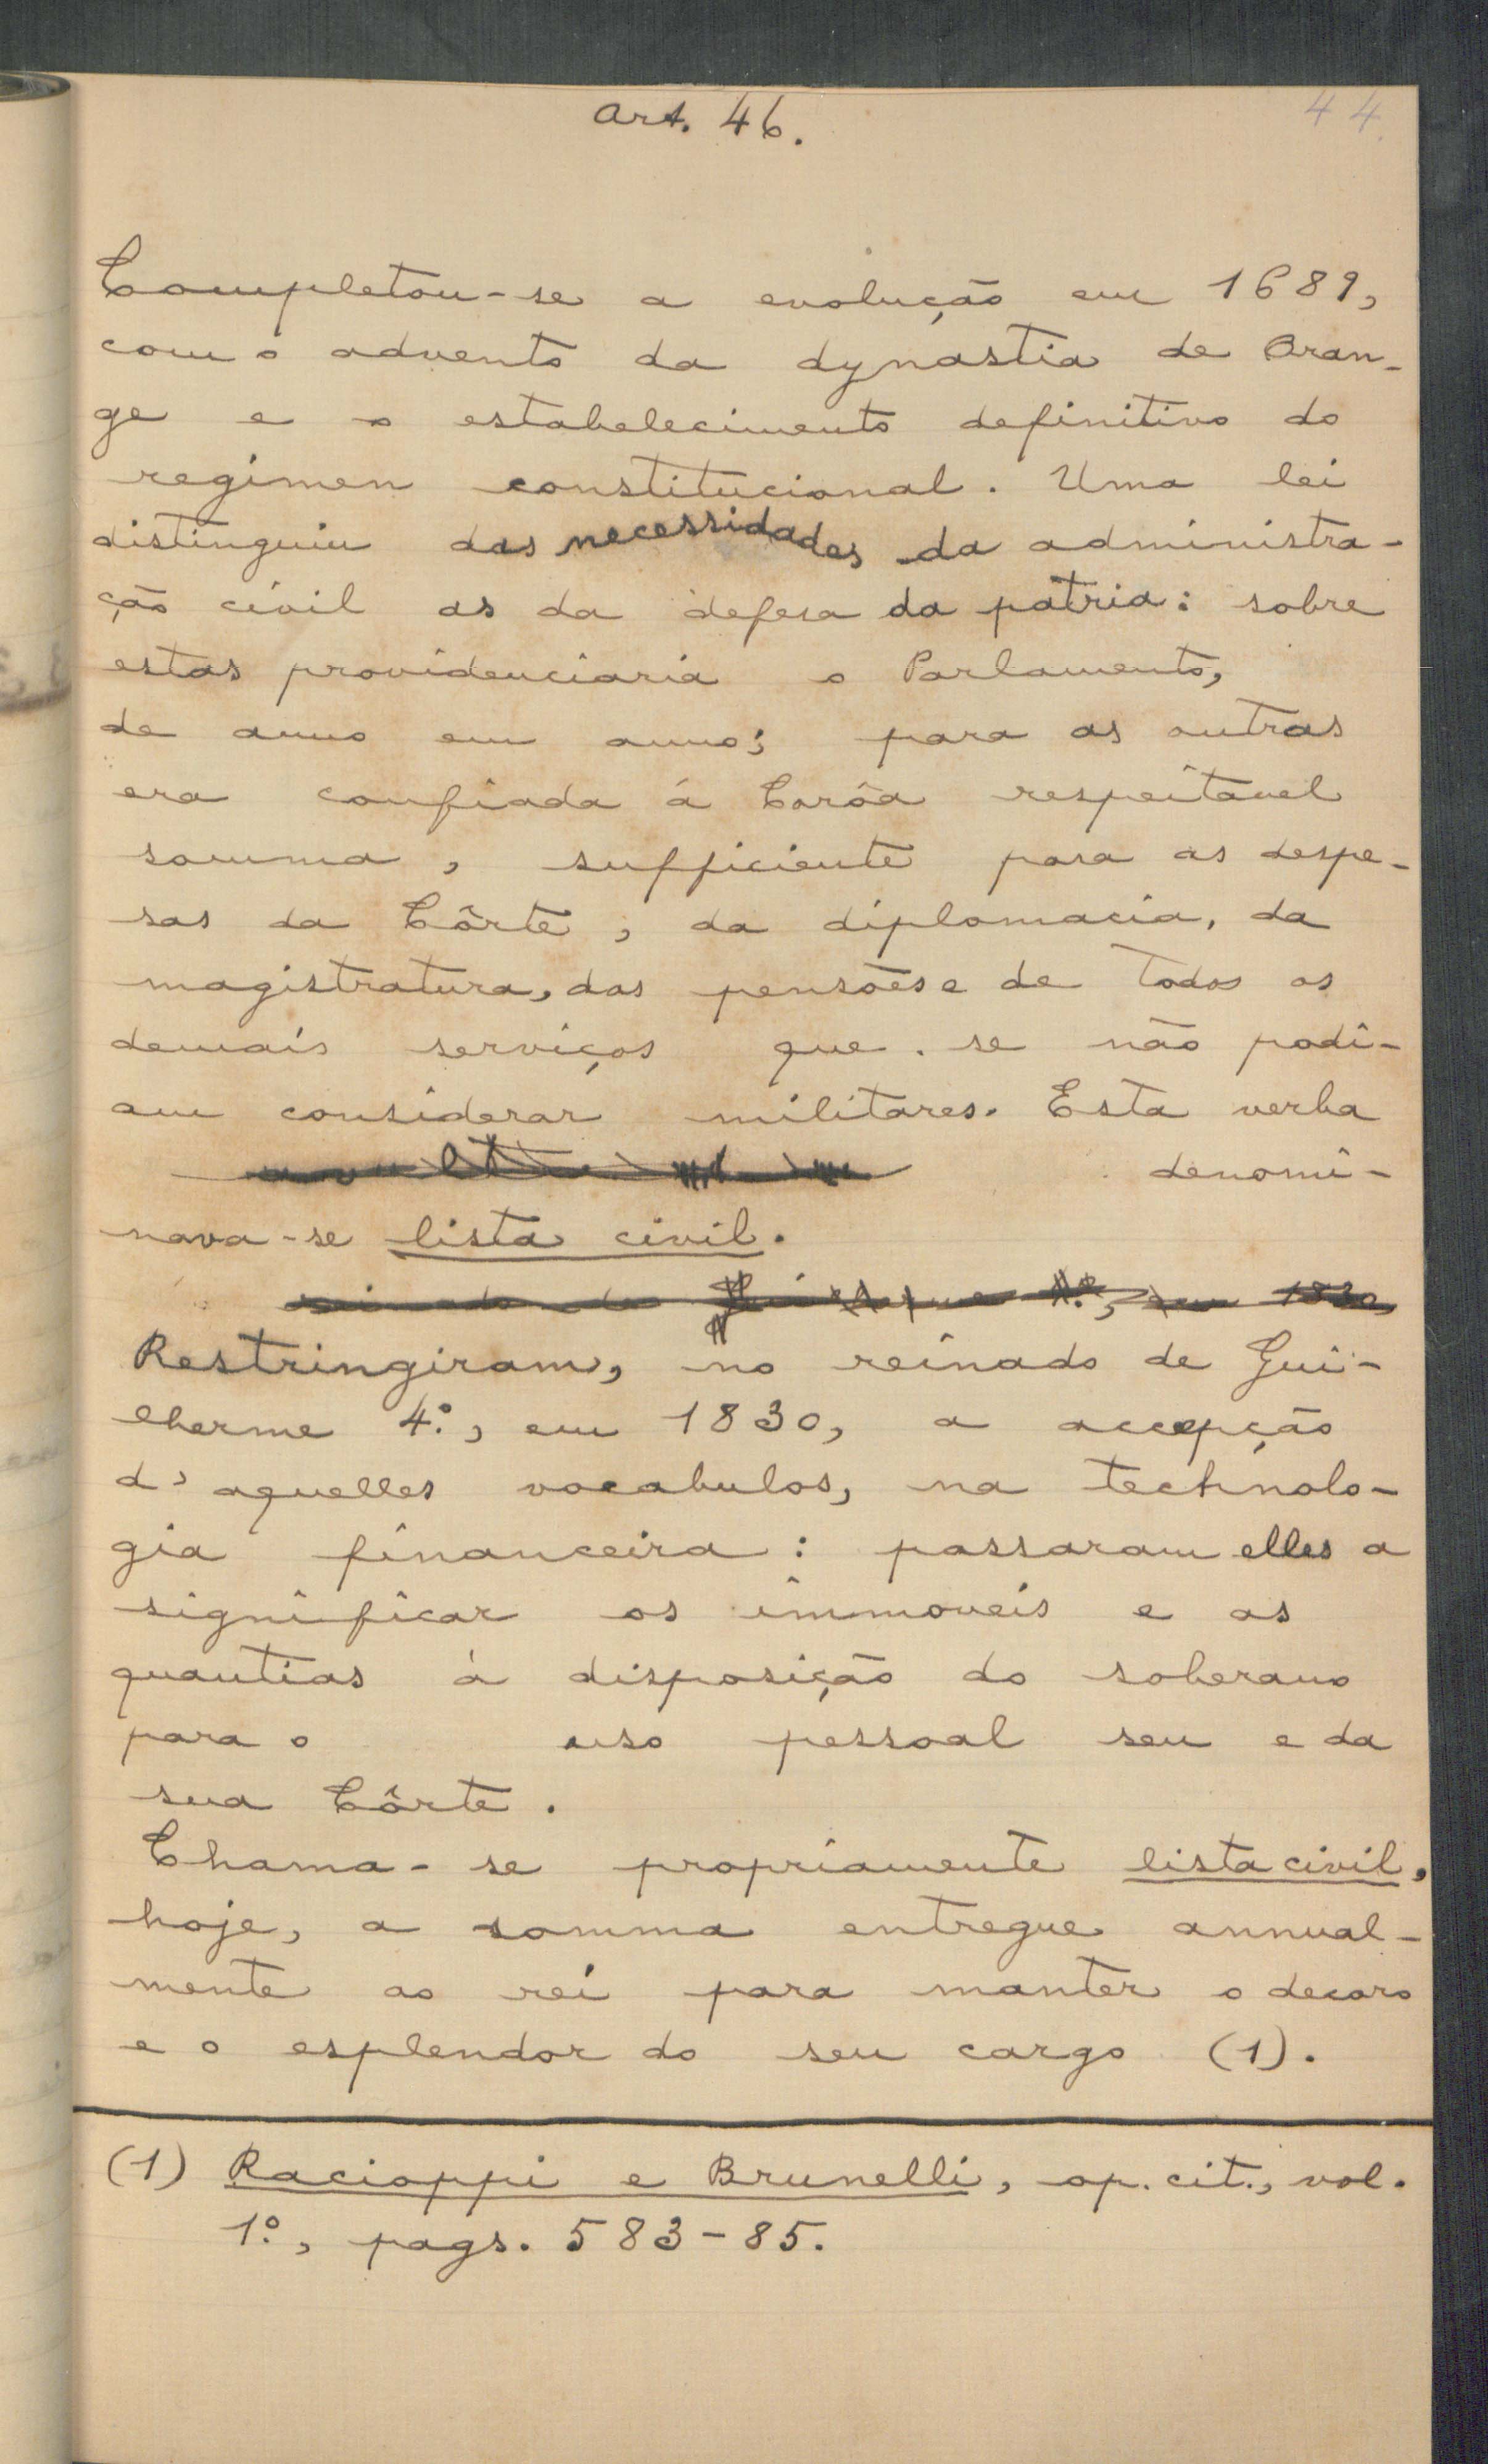 Art. 46.
44.
Completou-se a evolução em 1689,
com o advento da dynastia de Oran-
ge e o estabelecimento definitivo do
regimen constitucional. Uma lei
distinguiu das necessidades da administra-
ção civil as da defesa da patria: sobre
estas providenciaria o Parlamento,
de anno em anno; para as outras
era confiada á Corôa respeitavel
somma, sufficiente para as despe-
sas da Côrte, da diplomacia, da
magistratura, das pensões e de todos os
demais serviços que se não podi-
am considerar militares. Esta verba
denomi-
nava-se lista civil.
1830,
Restringiram, no reinado de Gui-
lherme 4º, em 1830, a accepção
d'aquelles vocabulos, na technolo-
gia financeira: passaram elles a
significar os immoveis e as
quantias à disposição do soberano
para o uso pessoal seu e da
sua Côrte.
Chama-se propriamente lista civil,
hoje, a somma entregue annual-
mente ao rei para manter o decoro
e o esplendor do seu cargo (1).
(1) Racioppi e Brunelli, op. cit., vol.
1º, pags. 583-85.